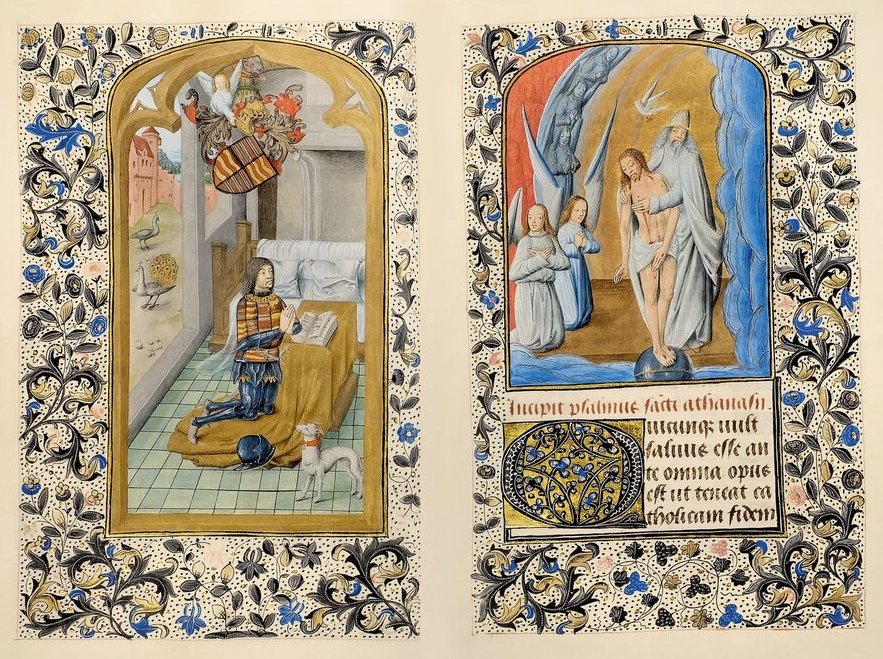 Incipit psalmus sancti athanasii.
Quicunq; vult
salvus esse an
te omnia opus
est ut teneat ca
tholicam fidem